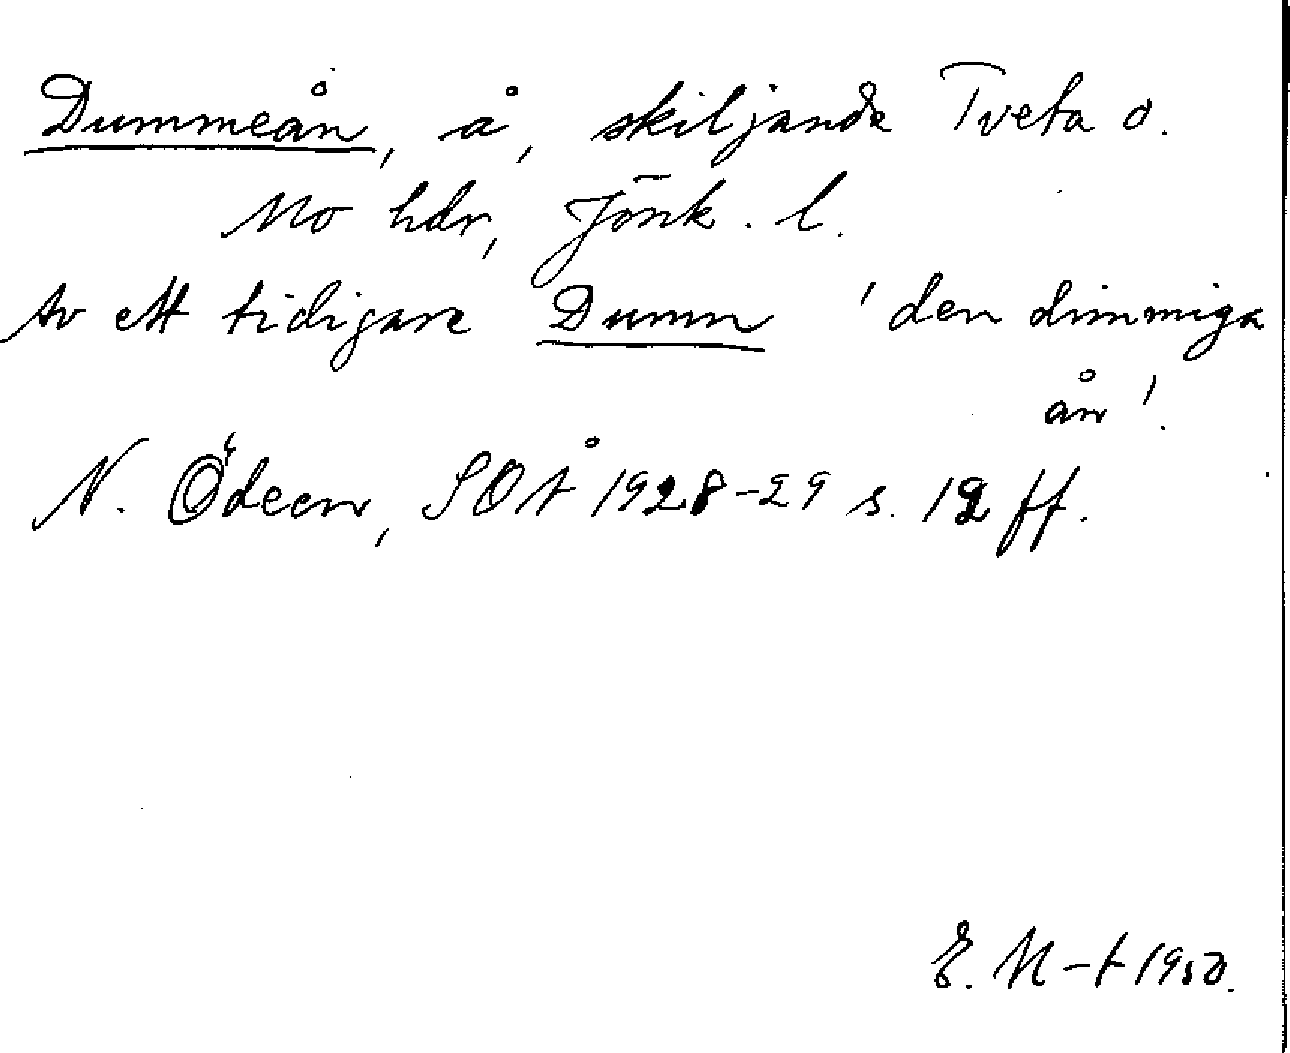 Dummeån, å, skiljande Tveta o.
Mo hdr, Jönk. l.
Av ett tidigare Dumm 'den dimmiga
ån'.
N. Ödeen, SOÅ 1928-29 s. 12 ff.
E. M-t 1950.